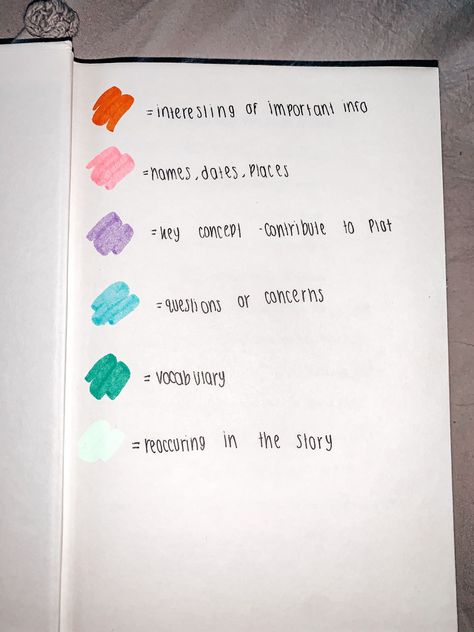 = interesting or important info
= names, dates, places
= key concept - contribute to plot
= questions or concerns
= vocabulary
= reoccuring in the story